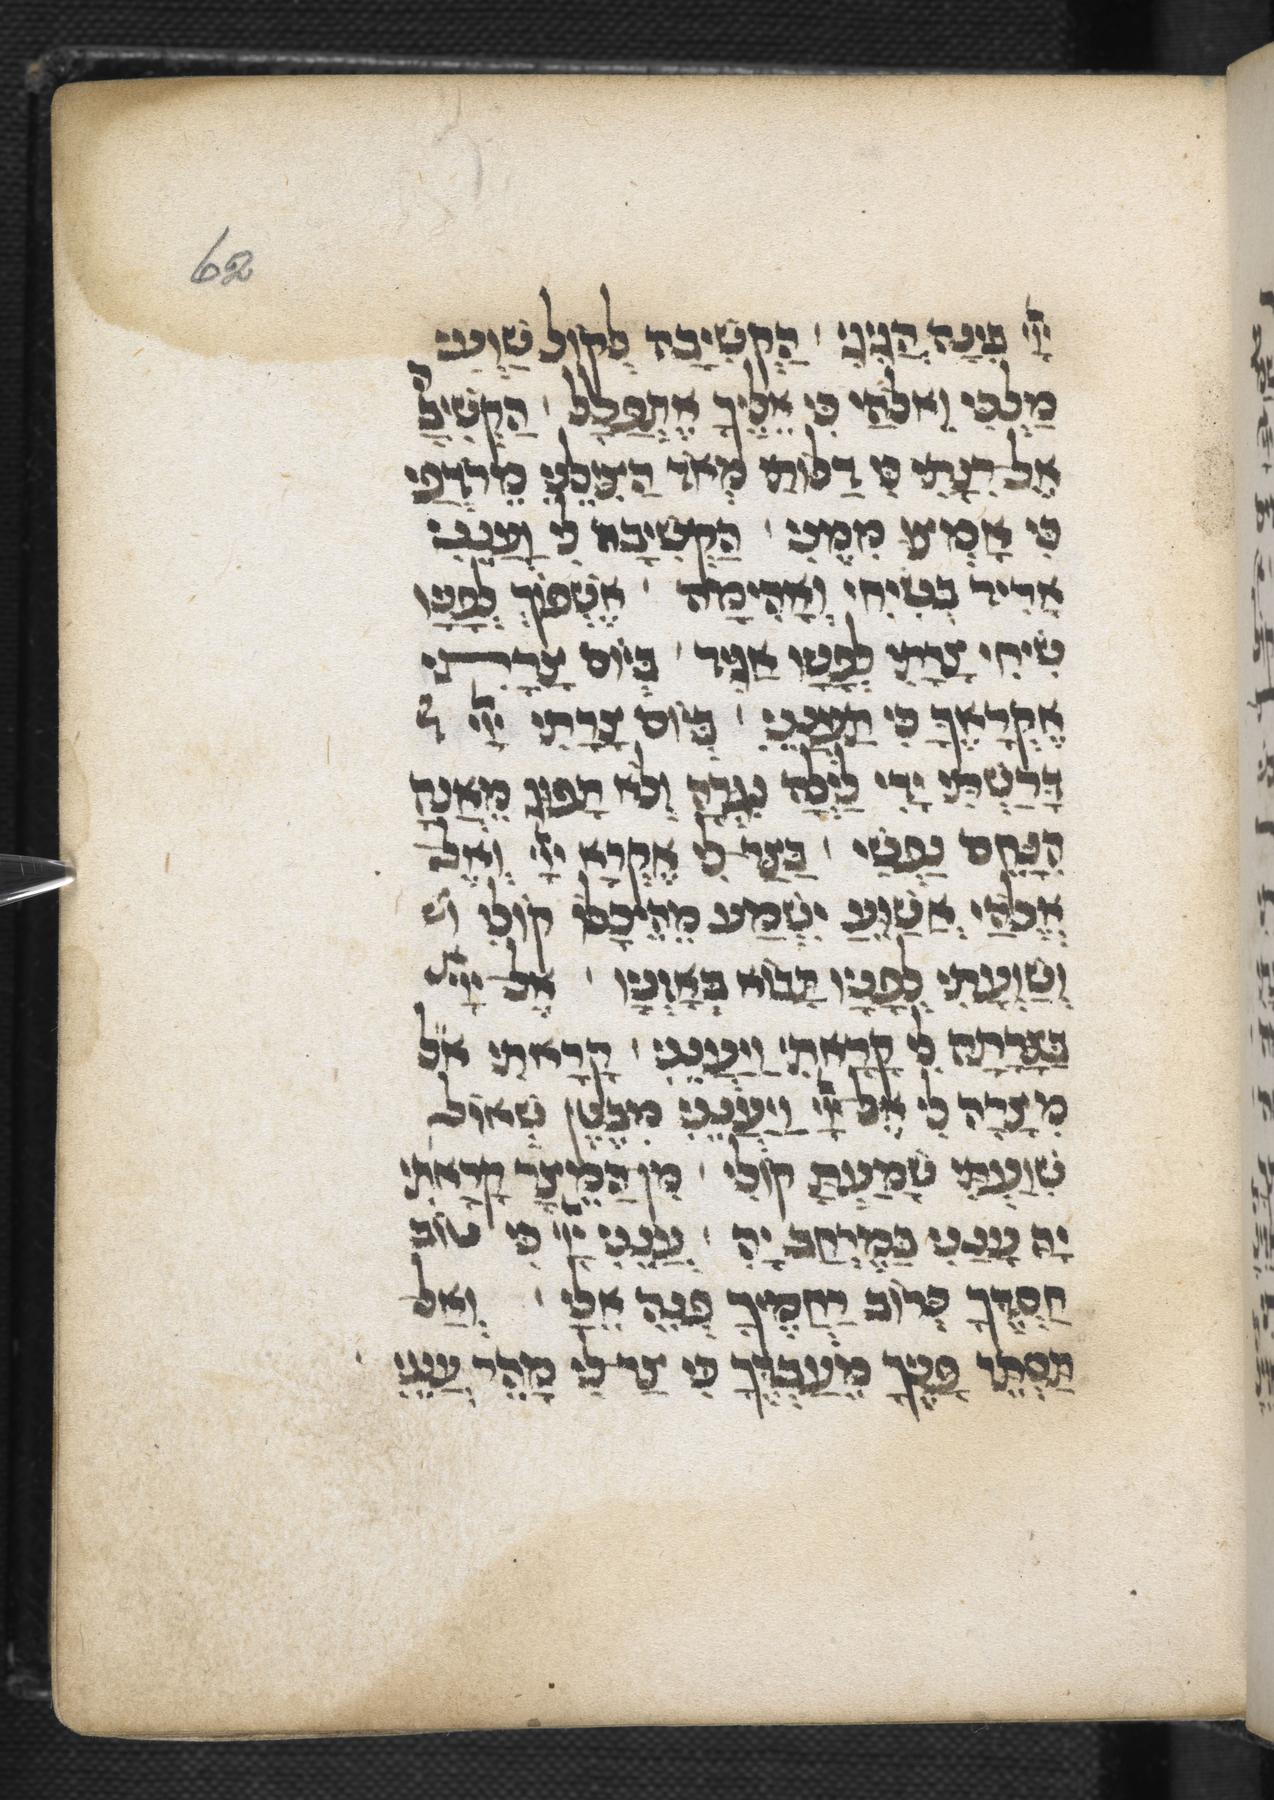 62
יְיָ בִּינָה הֲגִיגִי · הַקְשִׁיבָה לְקוֹל שַׁוְעִי
מַלְכִּי וֵאלֹהָי כִּי אֵלֶיךָ אֶתְפַּלָּל · הַקְשִׁיבָה
אֶל רִנָּתִי כִּי דַלּוֹתִי מְאֹד הַצִּילֵנִי מֵרֹדְפַי
כִּי אָמְצוּ מִמֶּנִּי · הַקְשִׁיבָה לִי וַעֲנֵנִי
אָרִיד בְּשִׂיחִי וְאָהִימָה · אֶשְׁפּוֹךְ לְפָנָיו
שִׂיחִי צָרָתִי לְפָנָיו אַגִּיד · בְּיוֹם צָרָתִי
אֶקְרָאֶךָּ כִּי תַעֲנֵנִי · בְּיוֹם צָרָתִי יְיָ
דָּרַשְׁתִּי יָדִי לַיְלָה נִגְּרָה וְלֹא תָפוּג מֵאֲנָה
הִנָּחֵם נַפְשִׁי · בַּצַּר לִי אֶקְרָא יְיָ וְאֶל
אֱלֹהַי אֲשַׁוֵּעַ יִשְׁמַע מֵהֵיכָלוֹ קוֹלִי וש
וְשַׁוְעָתִי לְפָנָיו תָּבוֹא בְאָזְנָיו · אֶל יְיָ
בַּצָּרָתָה לִּי קָרָאתִי וַיַּעֲנֵנִי · קָרָאתִי
מִצָּרָה לִי אֶל יְיָ וַיַּעֲנֵנִי מִבֶּטֶן שְׁאוֹל
שִׁוַּעְתִּי שָׁמַעְתָּ קוֹלִי · מִן הַמֵּצַר קָרָאתִי
יָהּ עָנָנִי בַמֶּרְחַב יָהּ · עֲנֵנִי יְיָ כִּי טוֹב
חַסְדֶּךָ כְּרוֹב רַחֲמֶיךָ פְּנֵה אֵלָי · וְאַל
תַּסְתֵּר פָּנֶיךָ מֵעַבְדֶּךָ כִּי צַר לִי מַהֵר עֲנֵנִי ·